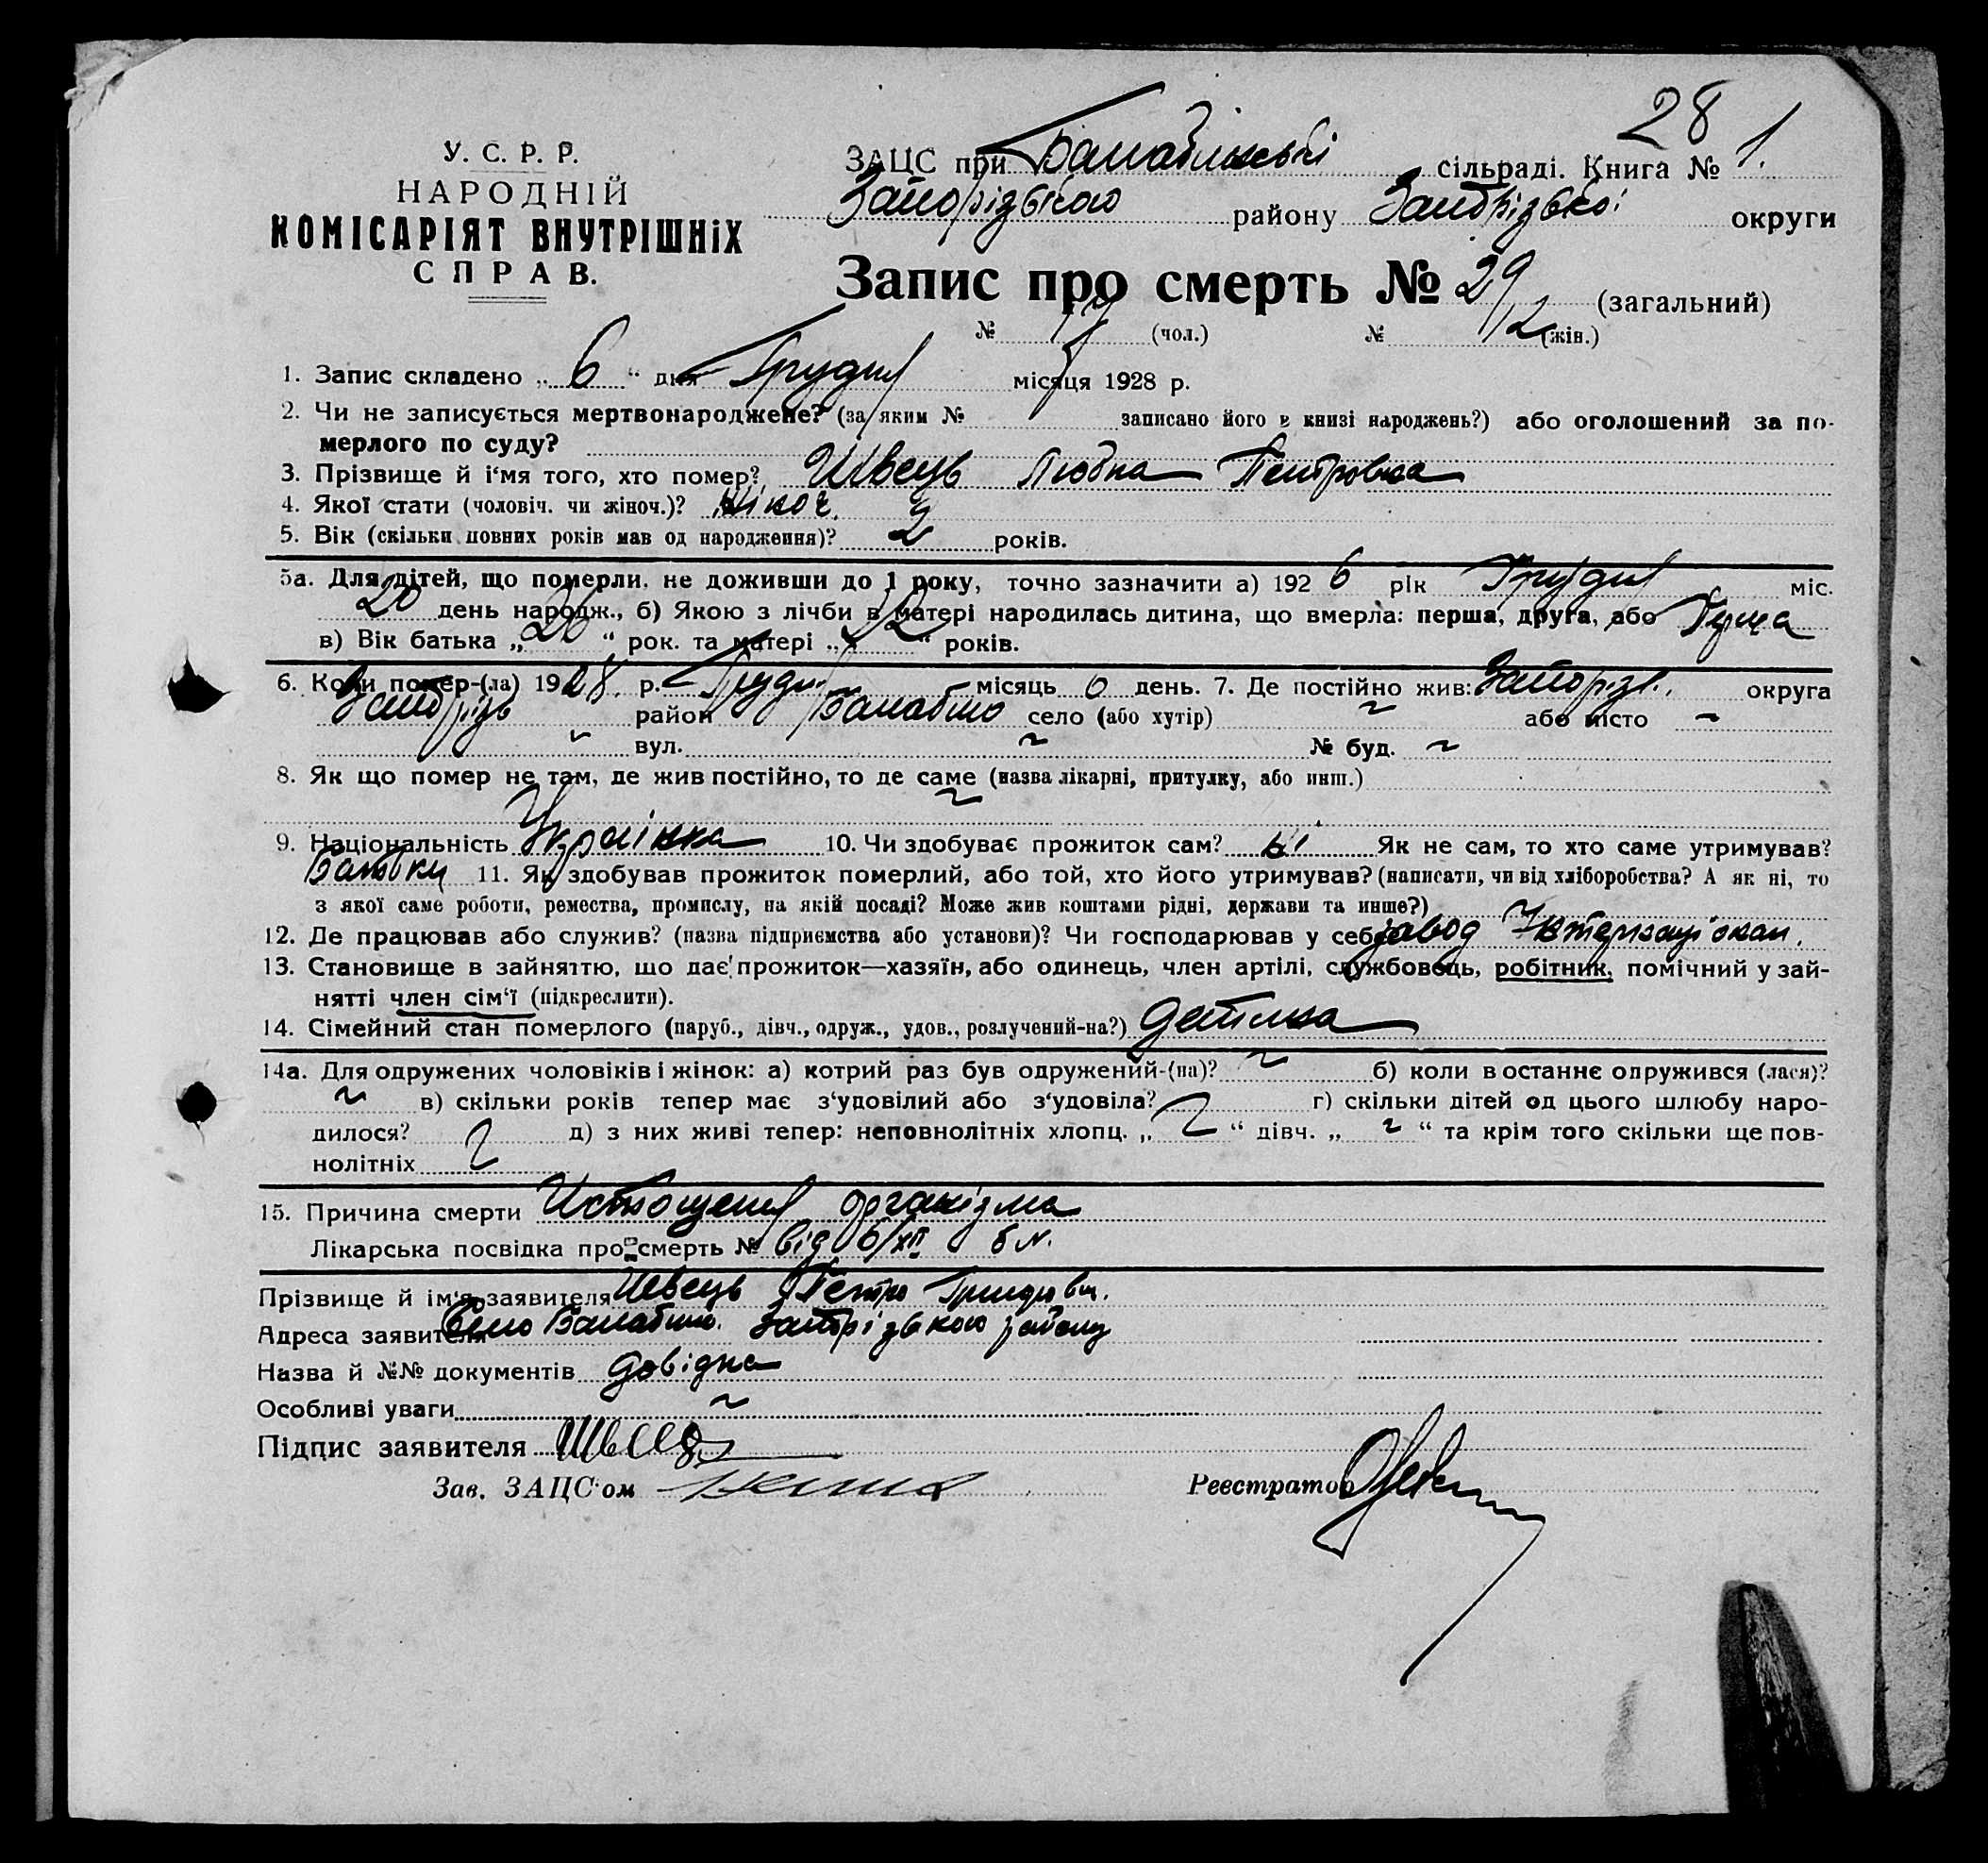 28
У. С. Р. Р.
НАРОДНІЙ
КОМІСАРІЯТ ВНУТРІШНІХ
СПРАВ.
ЗАЦС при Балабінські сільраді. Книга № 1.
Запорізького району Запорізької округи
Запис про смерть № 29 (загальний)
№ 17 (чол.) № 12 (жін.)
1. Запис складено „ 6 “ дня Грудня місяця 1928 р.
2. Чи не записується мертвонароджене? (за яким № записано його в книзі народжень?) або оголошений за по-
мерлого по суду?
3. Прізвище й і‘мя того, хто помер? Швець Любка Петровна
4. Якої стати (чоловіч. чи жіноч.)? жіноч.
5. Вік (скільки повних років мав од народження)? 2 років.
5а. Для дітей, що померли, не доживши до 1 року, точно зазначити а) 1926 рік Грудня міс.
20 день народж., б) Якою з лічби в матері народилась дитина, що вмерла: перша, друга, або
в) Вік батька „ 26 “ рок. та матері „ 22 “ років.
6. Коли помер-(ла) 1928. р. Грудня місяць 6 день. 7. Де постійно жив: Запоріз. округа
Запоріз район Балабино село (або хутір) ~ або місто ~
~ вул. ~ № буд. ~
8. Як що помер не там, де жив постійно, то де саме (назва лікарні, притулку, або инш.)
~
9. Національність Українка 10. Чи здобуває прожиток сам? ні Як не сам, то хто саме утримував?
Батьки 11. Як здобував прожиток померлий, або той, хто його утримував? (написати, чи від хліборобства? А як ні, то
з якої саме роботи, ремества, промислу, на якій посаді? Може жив коштами рідні, держави та инше?)
12. Де працював або служив? (назва підприємства або установи)? Чи господарював у себе? завод
13. Становище в зайняттю, що дає прожиток—хазяїн, або одинець, член артілі, службовець, робітник, помічний у зай-
нятті член сім‘ї (підкреслити).
14. Сімейний стан померлого (паруб., дівч., одруж., удов., розлучений-на?) дитина
14а. Для одружених чоловіків і жінок: а) котрий раз був одружений-(на)? ~ б) коли в останнє одружився (лася)?
~ в) скільки років тепер має з‘удовілий або з‘удовіла? ~ г) скільки дітей од цього шлюбу наро-
дилося? ~ д) з них живі тепер: неповнолітніх хлопц. „ ~ “ дівч. „ ~ “ та крім того скільки ще пов-
нолітніх
15. Причина смерти Истощения організма
Лікарська посвідка про смерть № від 6/XII б №.
Прізвище й ім‘я заявителя Швець Петро
Адреса заявителя Село Балабино. Запорізького району
Назва й №№ документів довідка
Особливі уваги ~
Підпис заявителя Швець
Зав. ЗАЦС‘ом Реєстратор